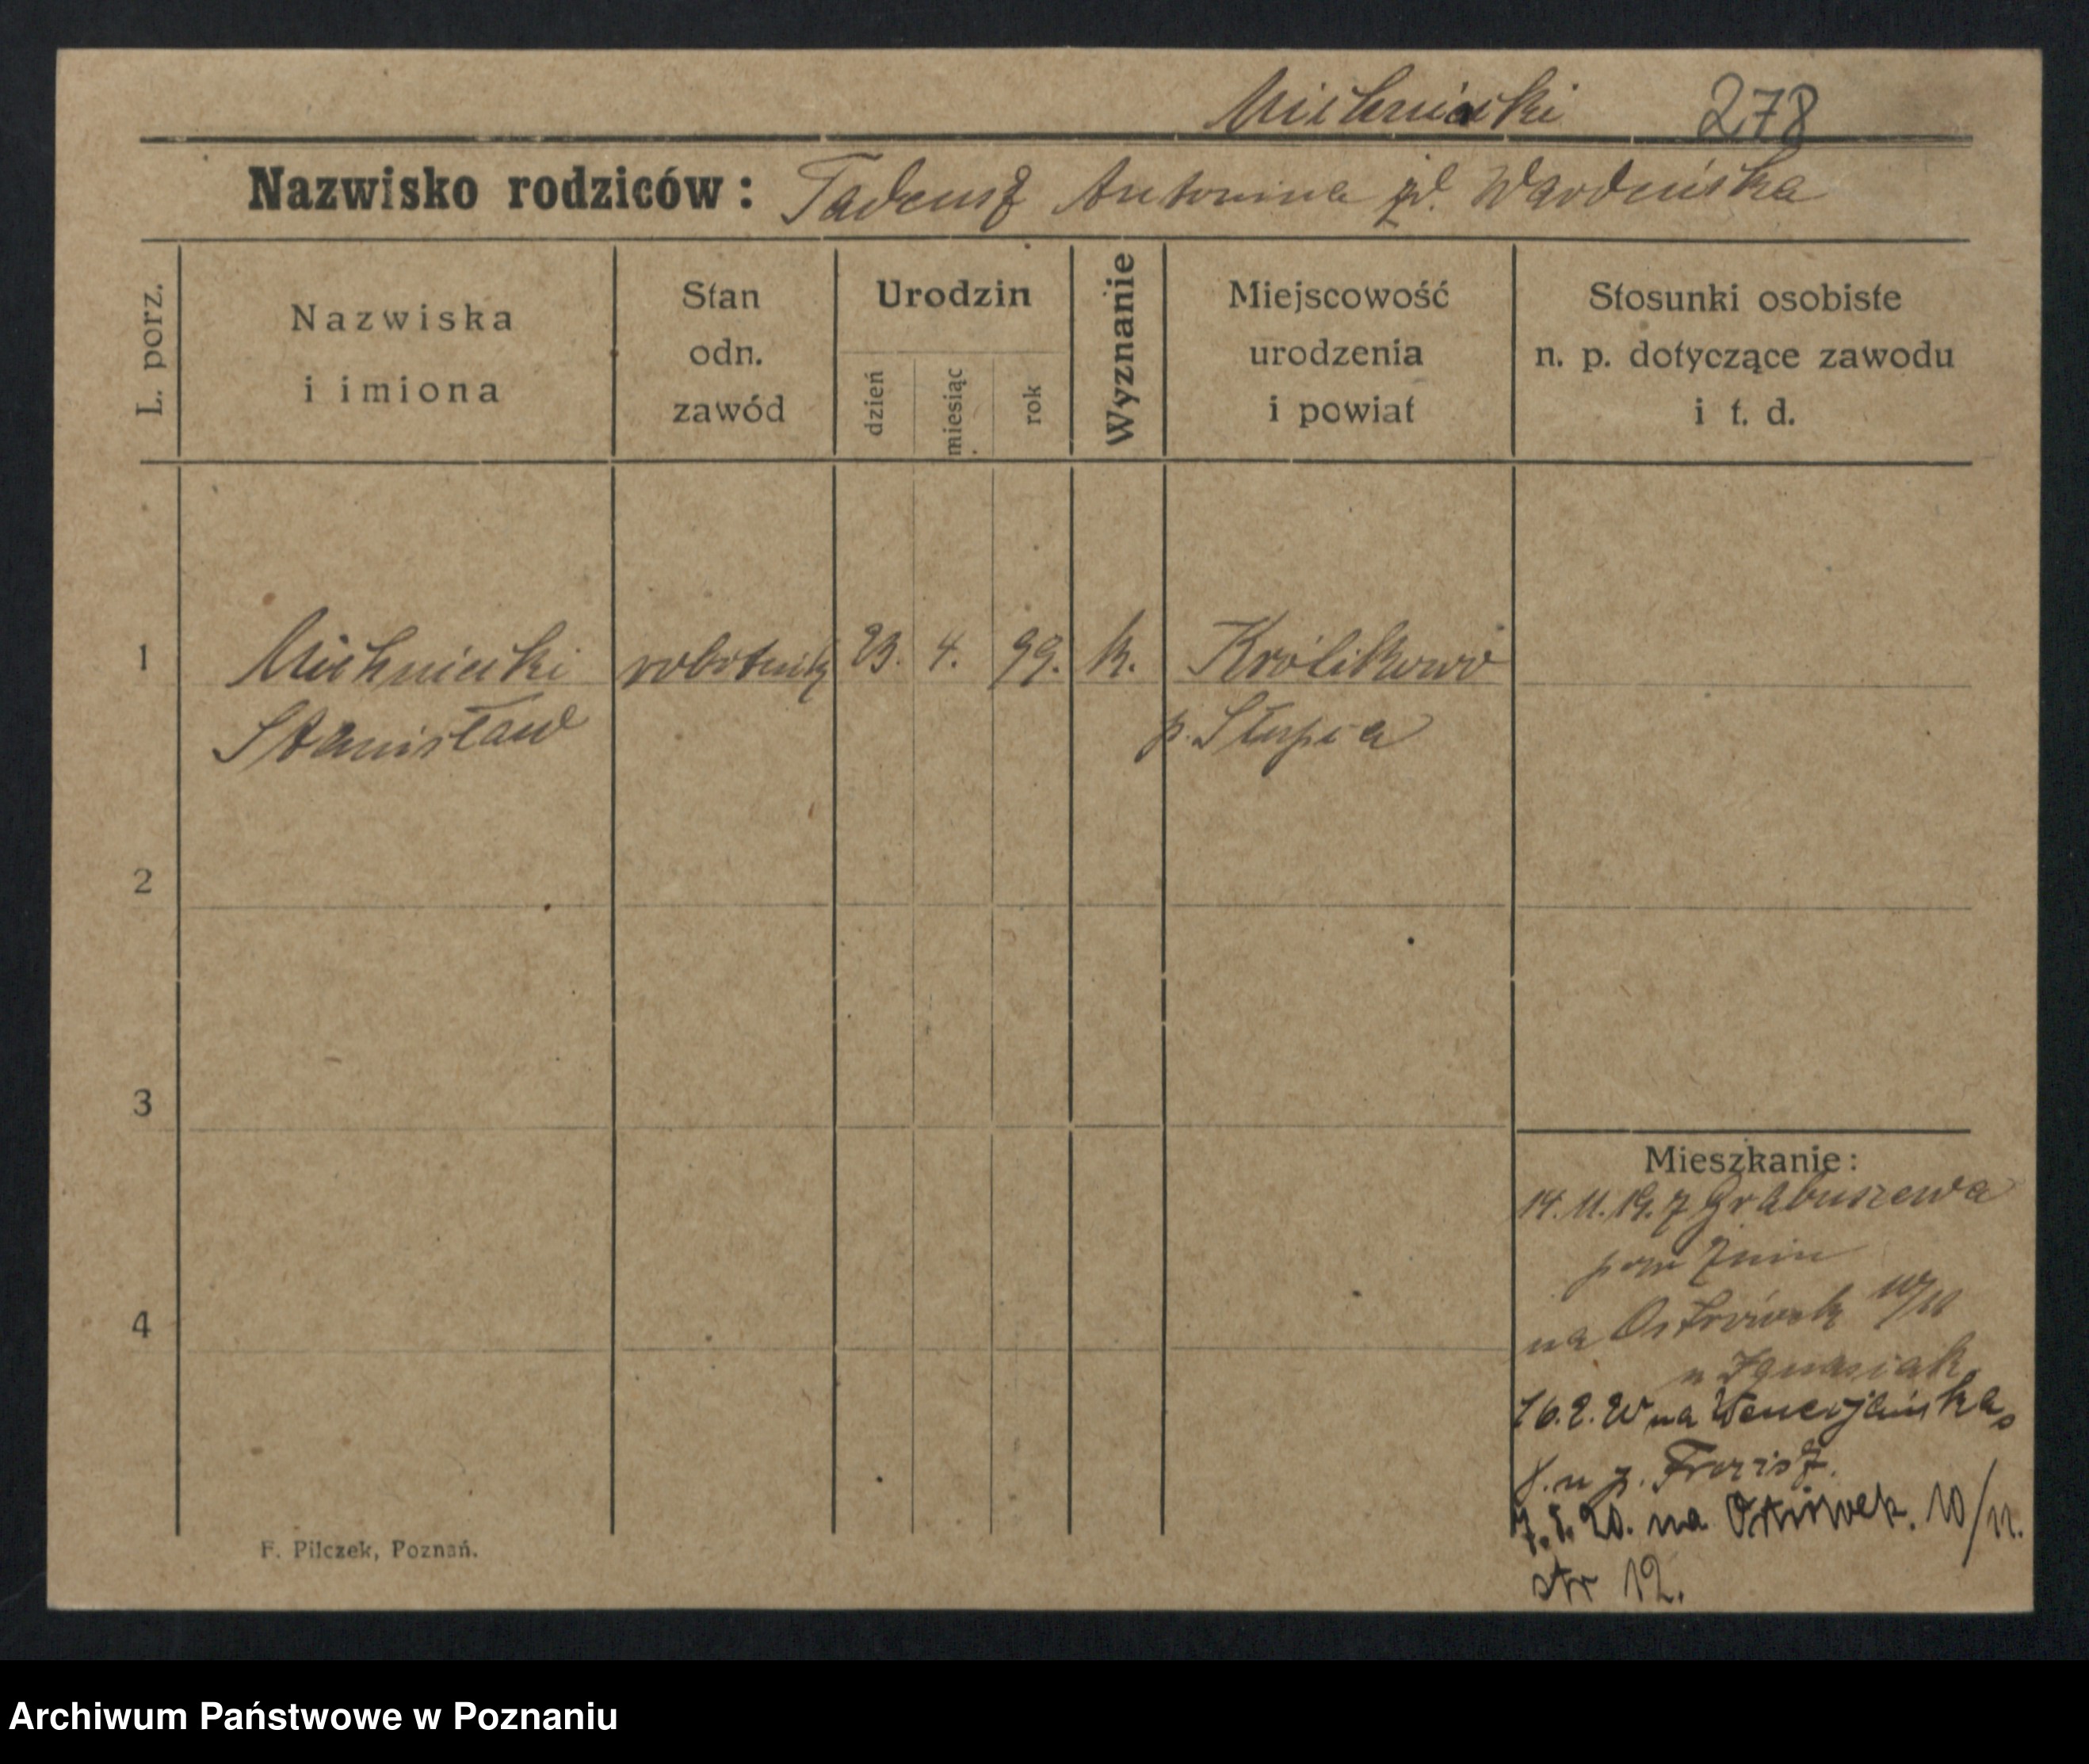 Michnicki 278
Nazwisko rodziców: Tadeusz Antonina zd.
L. porz.
Nazwiska
i imiona
Stan
odn.
zawód
Urodzin
dzień
miesiąc
rok
Wyznanie
Miejscowość
urodzenia
i powiat
Stosunki osobiste
n. p. dotyczące zawodu
i t. d.
1 Michnicki robotnik 23. 4. 99. k. Królikowo
Stanisław p. Słupia
2
3
4
Mieszkanie:
14. 11. 19. z
pow Żnin
na Ostrówek 10/11
u Ignasiak
16. 2. 20 na
u p.
20. na Ostrówek. 10/11.
str 12.
F. Pilczek, Poznań.
Archiwum Państwowe w Poznaniu